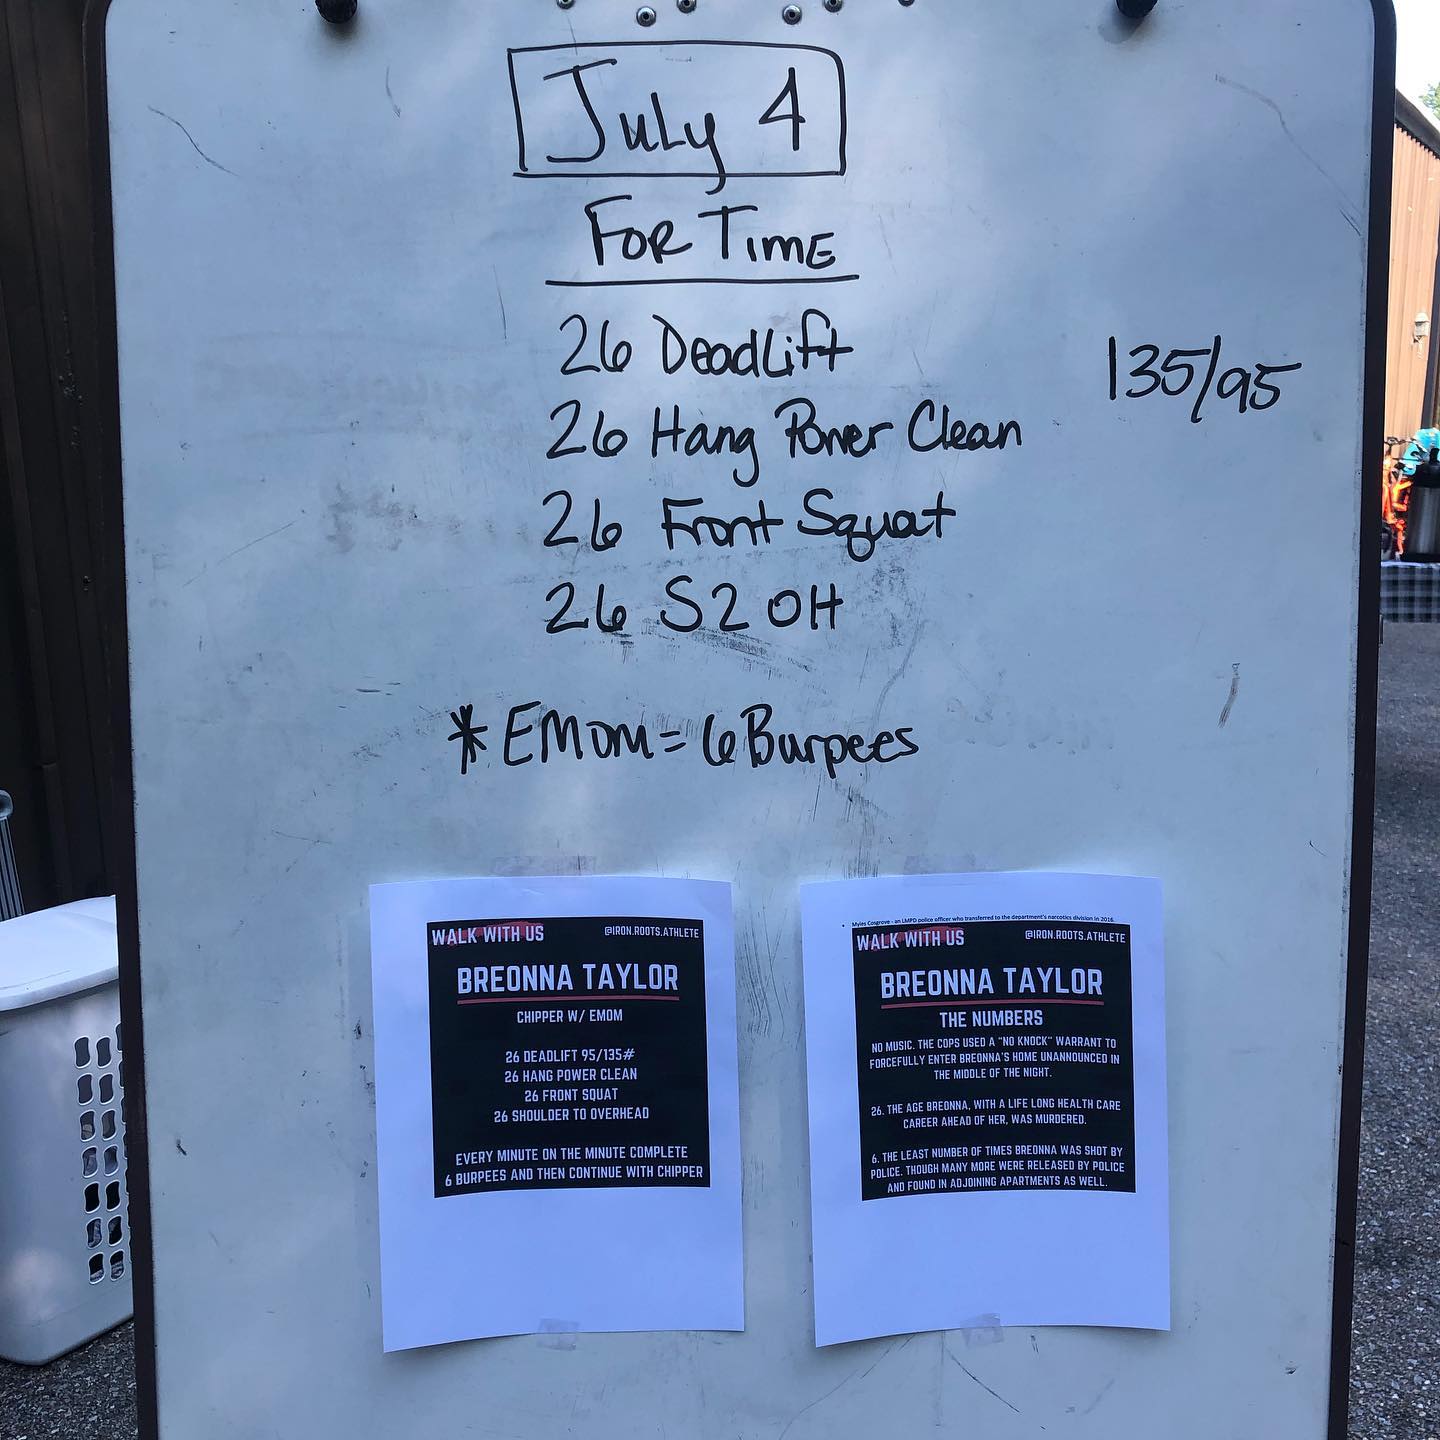 July 4
FOR TIME
26 DeadLift
135/95
26 Hang Power Clean
26 Front Squat
26 S2OH
*EMOM = 6 Burpees
WALK WITH US
@IRON.ROOTS.ATHLETE
BREONNA TAYLOR
CHIPPER W/ EMOM
26 DEADLIFT 95/135#
26 HANG POWER CLEAN
26 FRONT SQUAT
26 SHOULDER TO OVERHEAD
EVERY MINUTE ON THE MINUTE COMPLETE
6 BURPEES AND THEN CONTINUE WITH CHIPPER
• Myles Cosgrove - an LMPD police officer who transferred to the department's narcotics division in 2016.
WALK WITH US
@IRON.ROOTS.ATHLETE
BREONNA TAYLOR
THE NUMBERS
NO MUSIC. THE COPS USED A "NO KNOCK" WARRANT TO
FORCEFULLY ENTER BREONNA'S HOME UNANNOUNCED IN
THE MIDDLE OF THE NIGHT.
26. THE AGE BREONNA, WITH A LIFE LONG HEALTH CARE
CAREER AHEAD OF HER, WAS MURDERED.
6. THE LEAST NUMBER OF TIMES BREONNA WAS SHOT BY
POLICE. THOUGH MANY MORE WERE RELEASED BY POLICE
AND FOUND IN ADJOINING APARTMENTS AS WELL.